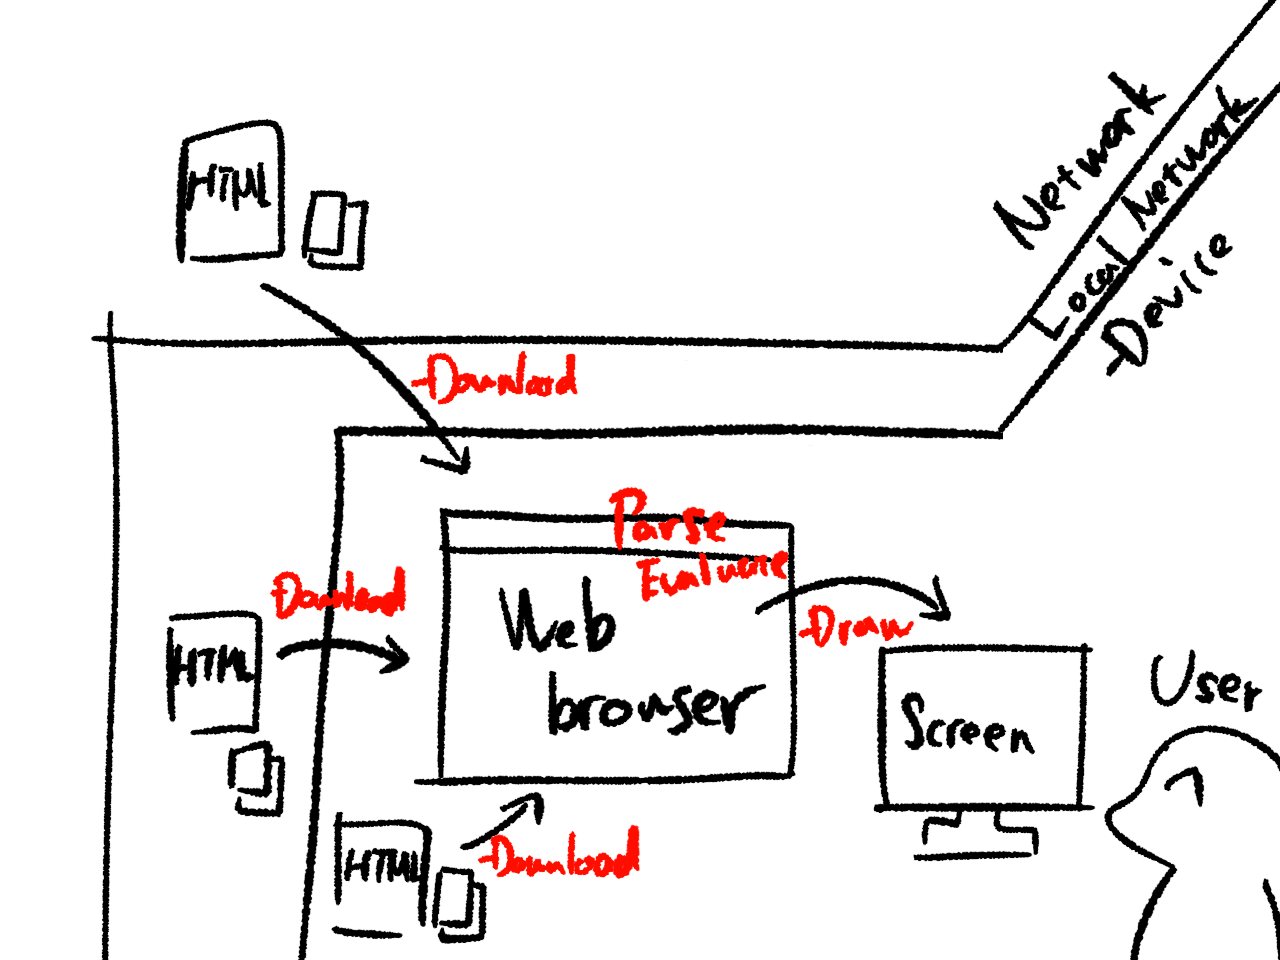 HTML
Network
Local Network
Device
Download
Parse
Evaluate
Download
Web
browser
Draw
HTML
Screen
User
HTML
Download